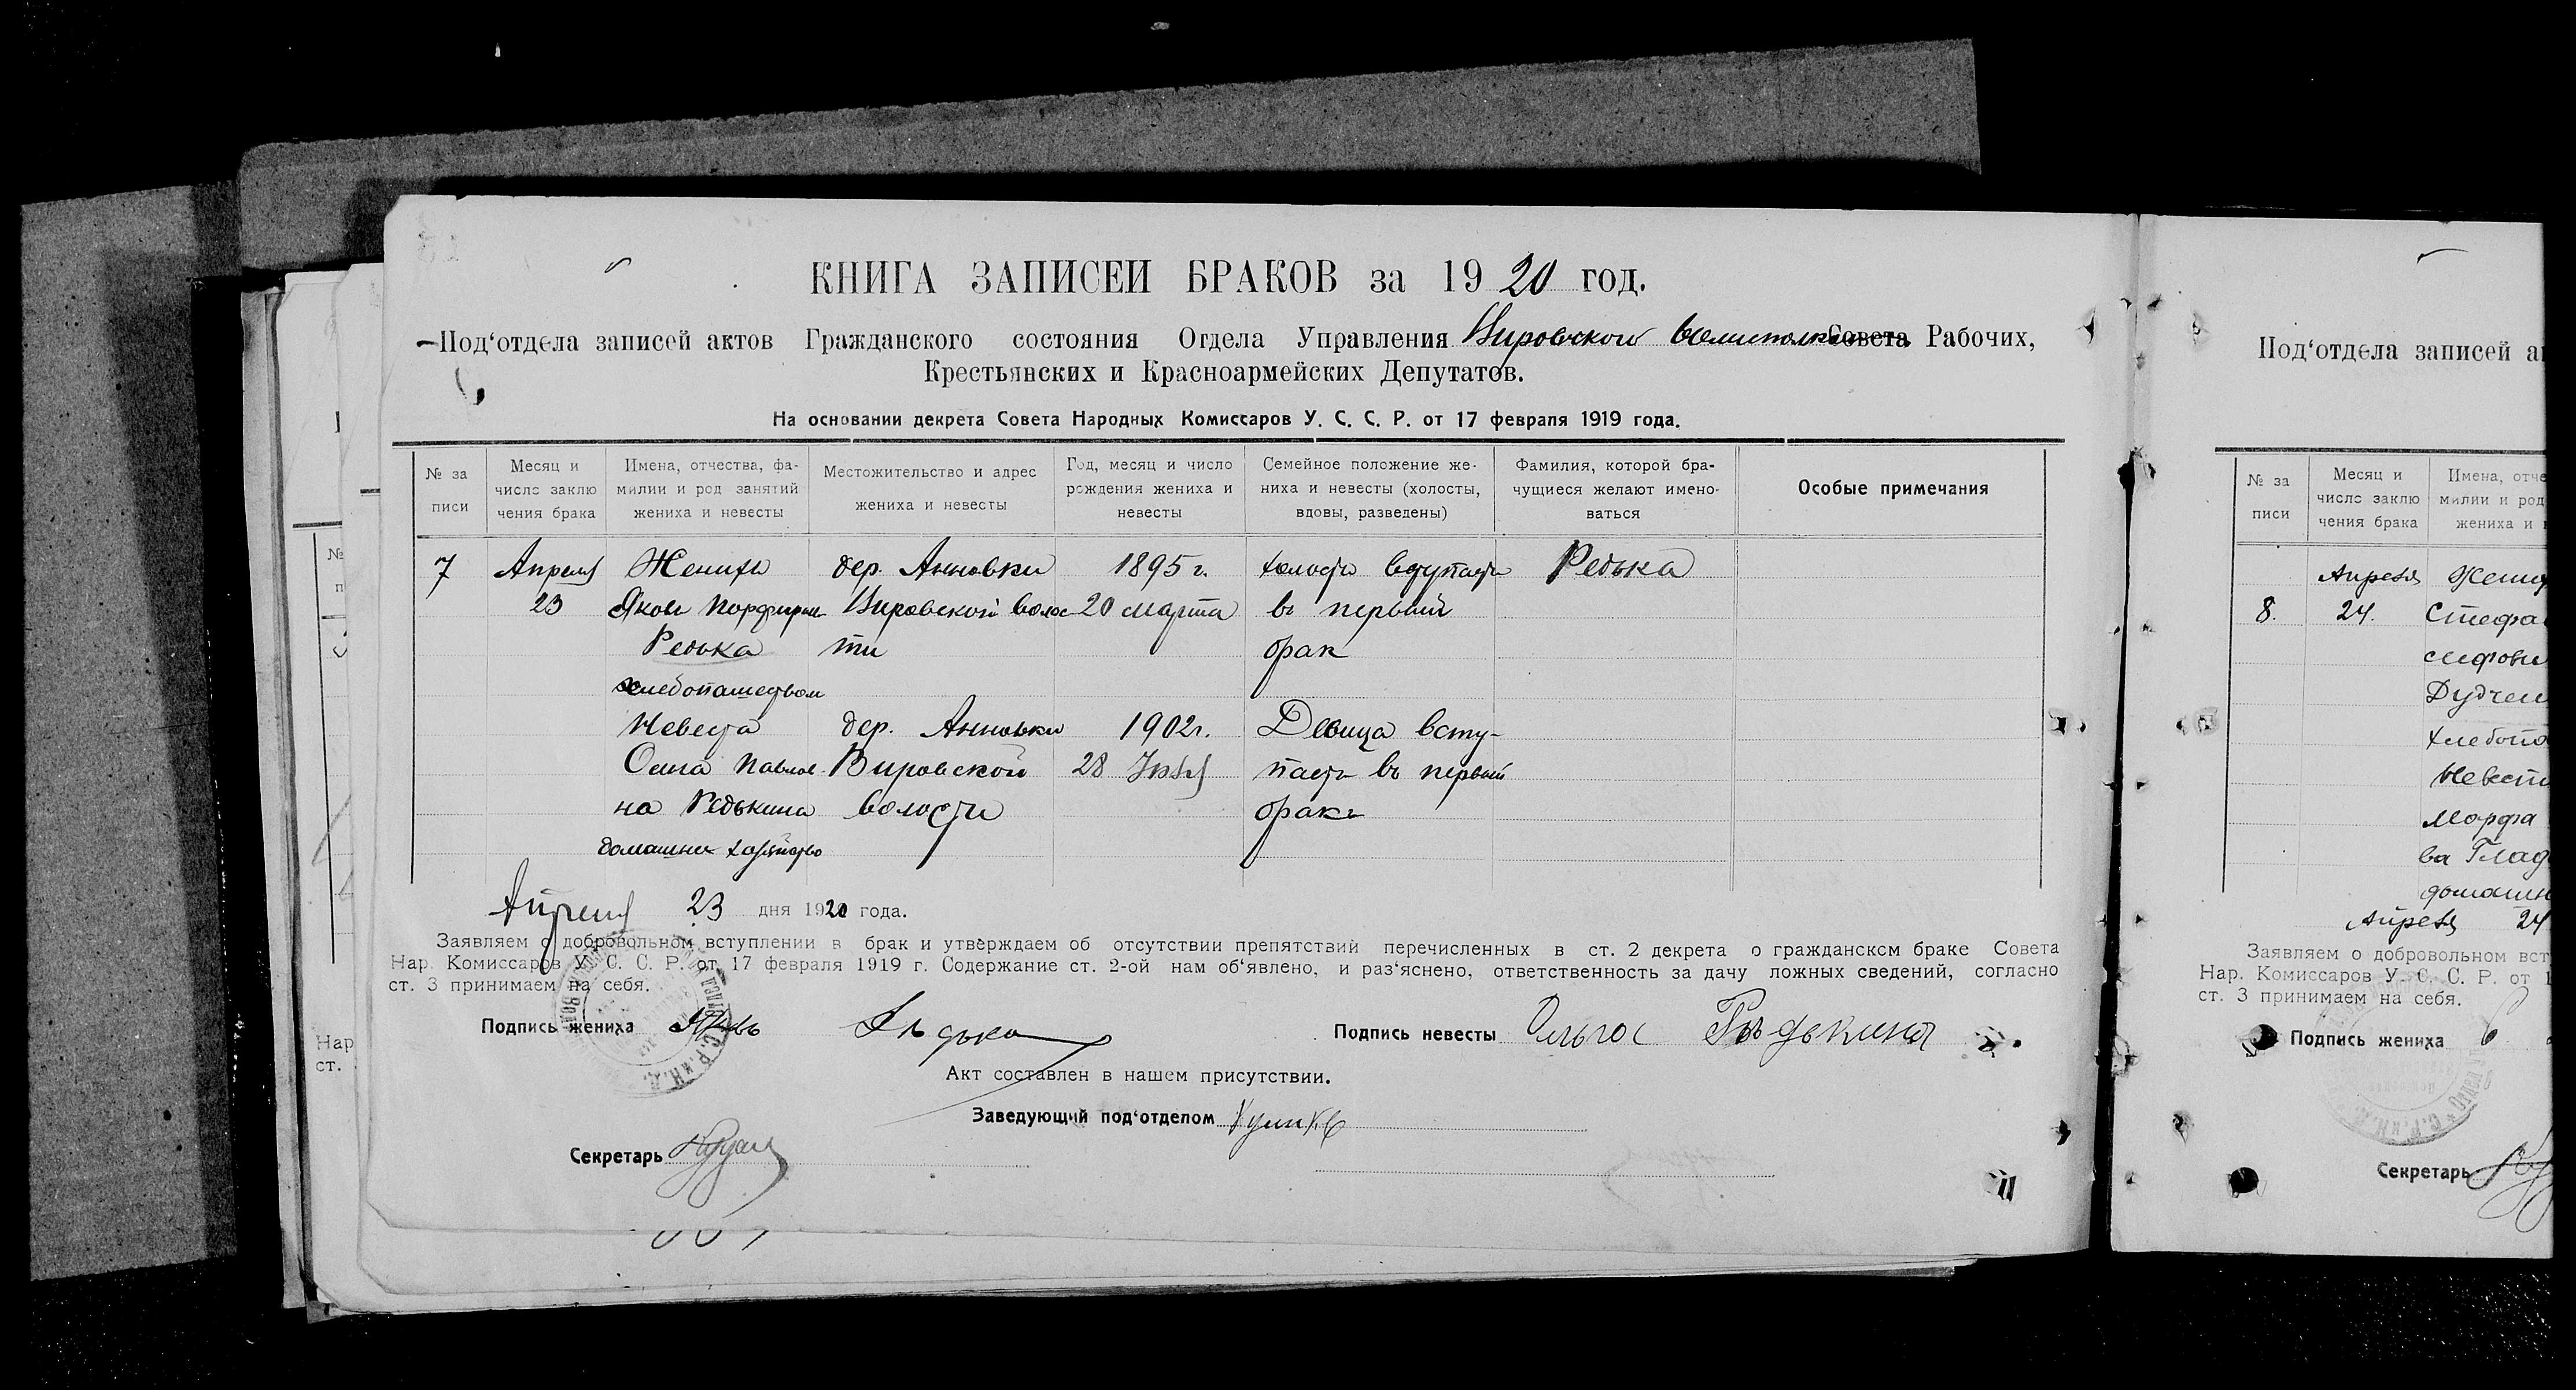 КНИГА ЗАПИСЕЙ БРАКОВ за 1920 год.
Под‘отдела записей актов Гражданского состояния Отдела Управления Вировского Волисполкома Совета Рабочих,
Крестьянских и Красноармейских Депутатов.
На основании декрета Совета Народных Комиссаров У. С. С. Р. от 17 февраля 1919 года.
№ за писи
Месяц и число заклю чения брака
Имена, отчества, фа- милии и род занятий жениха и невесты
Местожительство и адрес жениха и невесты
Год, месяц и число рождения жениха и невесты
Семейное положение же- ниха и невесты (холосты, вдовы, разведены)
Фамилия, которой бра- чущиеся желают имено- ваться
Особые примечания
7 Апреля Женихъ дер. Анновки 1895 г. холостъ вступаетъ Редька
23 Яковъ Порфирьев Вировской волос 20 марта въ первый
Редька ти брак
хлебопашеством
Невеста дер. Анновки 1902 г. Девица всту-
Павлов- Вировской 28 паетъ въ первый
на Редькина волости бракъ
домашнее хозяйство
Апреля 23 дня 1920 года.
Заявляем о добровольном вступлении в брак и утверждаем об отсутствии препятствий перечисленных в ст. 2 декрета о гражданском браке Совета
Нар. Комиссаров У. С. С. Р. от 17 февраля 1919 г. Содержание ст. 2-ой нам об‘явлено, и раз‘яснено, ответственность за дачу ложных сведений, согласно
ст. 3 принимаем на себя.
Подпись жениха Яковъ Рѣдька Подпись невесты Ольга Рѣдькина
Акт составлен в нашем присутствии.
Заведующий под‘отделом
Секретарь
Под‘отдела записей а
№ за писи
Месяц и число заклю чения брака
Имена, отче милии и род жениха и
Апреля Жених
8. 24. Стефа
Дудчен
хлебопа
Невест
Марфа
ва Глад
домашн
Апреля 24
Заявляем о добровольном вст
Нар. Комиссаров У. С. С. Р. от 1
ст. 3 принимаем на себя.
Подпись жениха
Секретарь
Нар
ст.